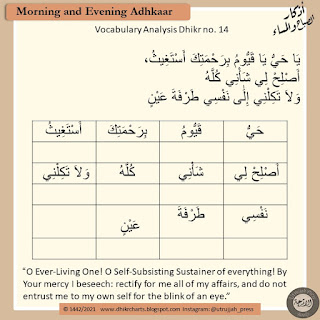 Morning and Evening Adhkaar
أذكار
الصباح والمساء
Vocabulary Analysis Dhikr no. 14
يَا حَيُّ يَا قَيُّومُ بِرَحْمَتِكَ أَسْتَغِيثُ،
أَصْلِحْ لِي شَأْنِي كُلَّهُ
وَلاَ تَكِلْنِي إِلَى نَفْسِي طَرْفَةَ عَيْنٍ
حَيُّ قَيُّومُ بِرَحْمَتِكَ أَسْتَغِيثُ
أَصْلِحْ لِي شَأْنِي كُلَّهُ وَلاَ تَكِلْنِي
نَفْسِي طَرْفَةَ
عَيْنٍ
"O Ever-Living One! O Self-Subsisting Sustainer of everything! By
Your mercy I beseech: rectify for me all of my affairs, and do not
entrust me to my own self for the blink of an eye."
© 1442/2021 www.dhikrcharts.blogspot.com Instagram: @utrujjah_press